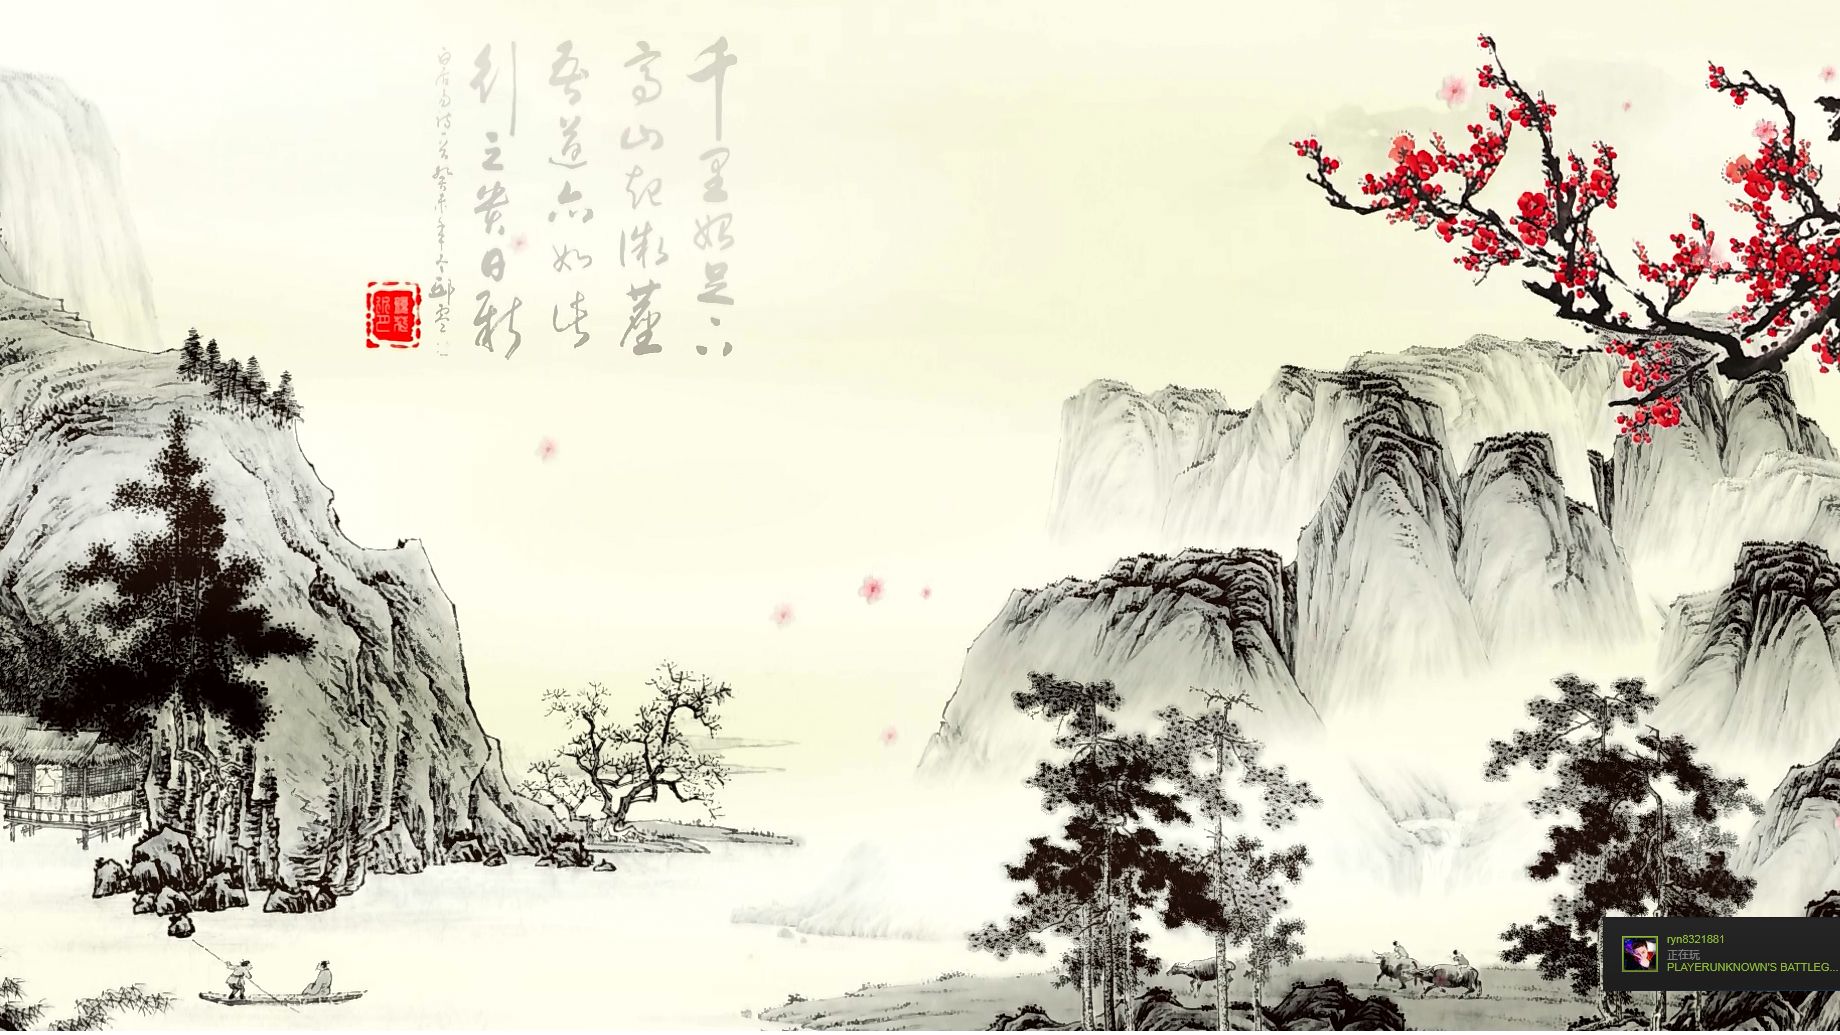 千里始足下
高山起微塵
吾道亦如此
行之貴日新
ryn8321881
正在玩
PLAYERUNKNOWN'S BATTLEG...